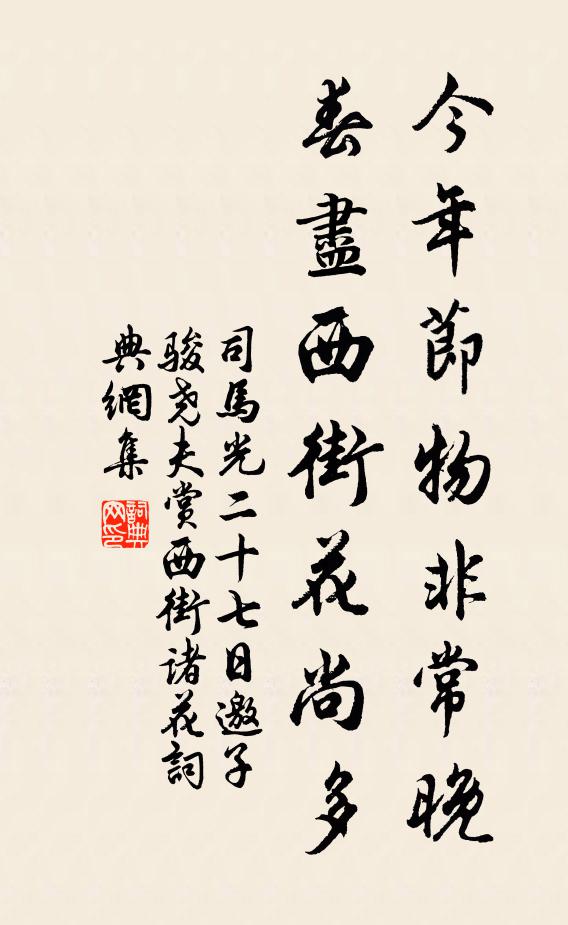 今年節物非常晚
春盡西街花尚多
司馬光二十七日邀子
駿尭夫賞西街諸花詞
典網集
詞典
网印